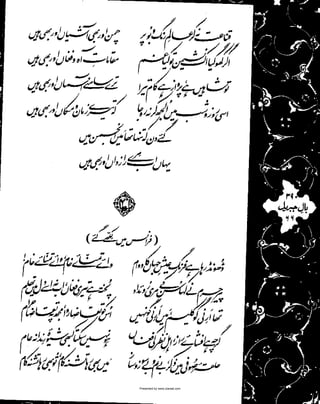 قناعت نہ کر عالمِ رنگ و بو پر چمن اور بھی آشیاں اور بھی ہیں
اگر کھو گیا اک نشیمن تو کیا غم مقاماتِ آہ و فغاں اور بھی ہیں
تو شاہیں ہے پرواز ہے کام تیرا ترے سامنے آسماں اور بھی ہیں
اسی روز و شب میں الجھ کر نہ رہ جا کہ تیرے زمان و مکاں اور بھی ہیں
گئے دن کہ تنہا تھا میں انجمن میں
یہاں اب مرے رازداں اور بھی ہیں
(فرانس میں لکھے گئے)
ڈھونڈ رہا ہے فرنگ عیشِ جہاں کا دوام وائے تمنائے خام، وائے تمنائے خام
پیرِ حرم نے کہا سن کے مری روئداد پختہ ہے تیری فغاں اب نہ اسے دل میں تھام
تھا ارنی گو کلیم، میں ارنی گو نہیں اس کو تقاضا روا، مجھ پہ تقاضا حرام
گرچہ ہے افشائے راز، اہلِ نظر کی فغاں ہو نہیں سکتا کبھی شیوۂ رندانہ عام
حلقۂ صوفی میں ذکر، بے نم و بے سوز و ساز میں بھی رہا تشنہ کام، تو بھی رہا تشنہ کام
بالِ جبریل